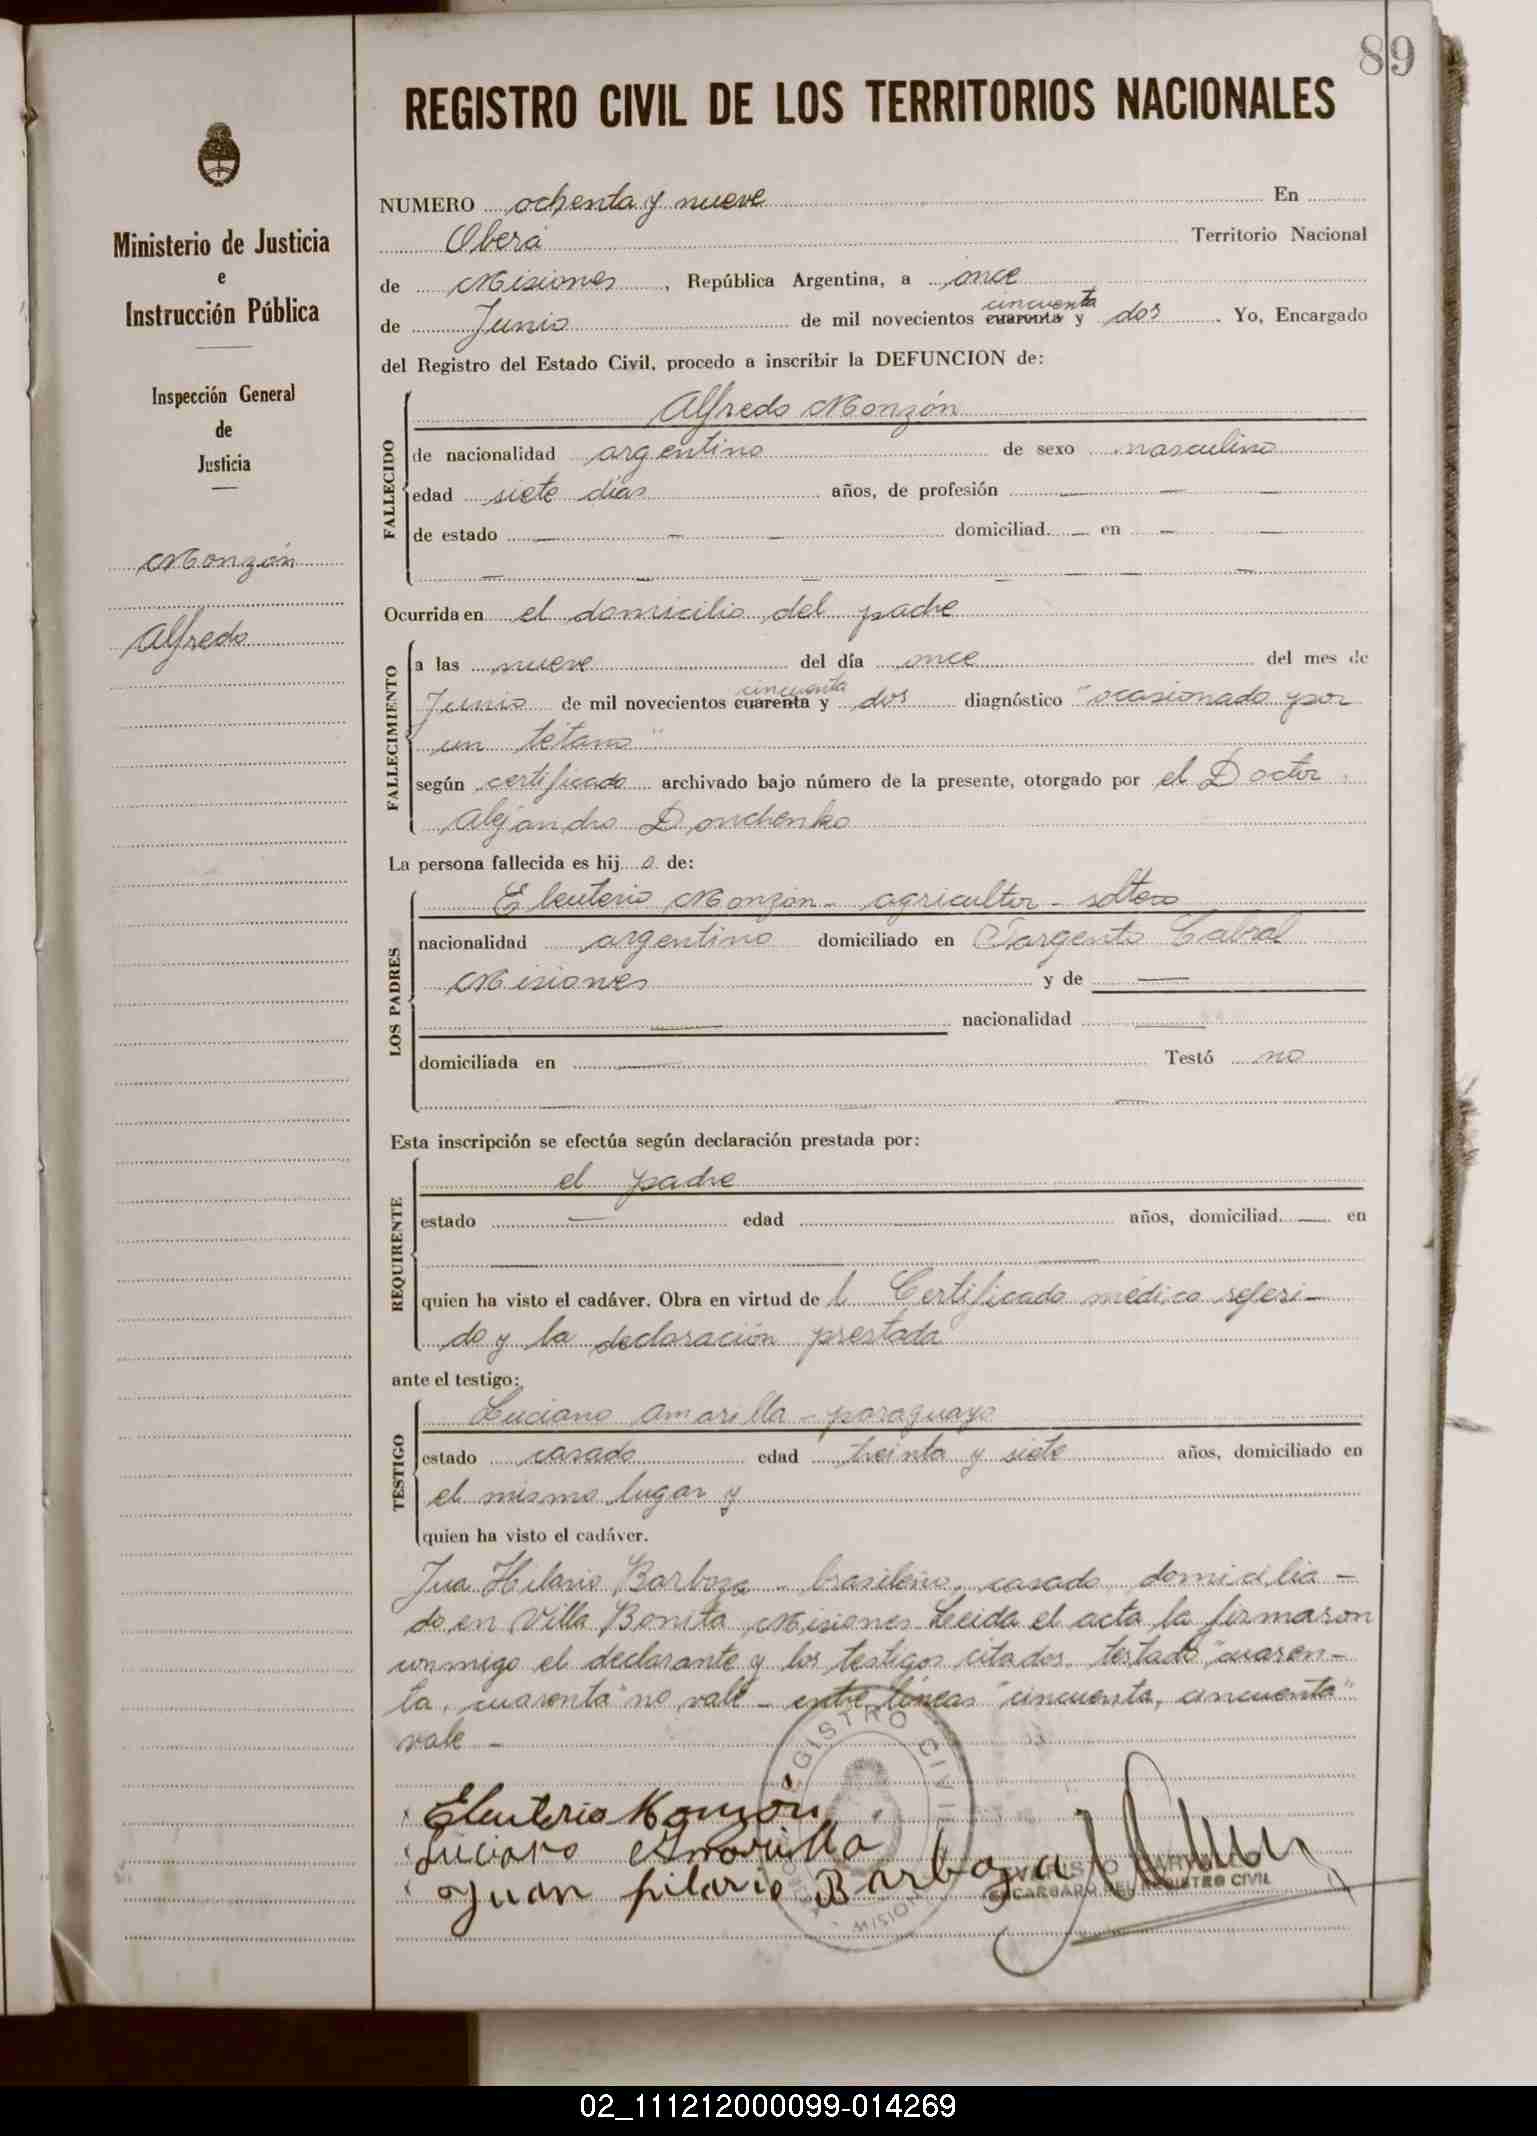 89
REGISTRO CIVIL DE LOS TERRITORIOS NACIONALES
Ministerio de Justicia
e
Instrucción Pública
Inspección General
de
Justicia
Monzón
Alfredo
NUMERO ochenta y nueve En
Oberá Territorio Nacional
de Misiones, República Argentina, a once
cincuenta
de Junio de mil novecientos cuarenta y dos. Yo, Encargado
del Registro del Estado Civil, procedo a inscribir la DEFUNCION de:
FALLECIDO
Alfredo Monzón
de nacionalidad argentino de sexo masculino
edad siete días años, de profesión —
de estado — domiciliad — en —
Ocurrida en el domicilio del padre
FALLECIMIENTO
a las nueve del día once del mes de
cincuenta
Junio de mil novecientos cuarenta y dos diagnóstico "ocasionado por
un tétano"
según certificado archivado bajo número de la presente, otorgado por el Doctor
Alejandro
La persona fallecida es hijo de:
LOS PADRES
Eleuterio Monzón - agricultor - soltero
nacionalidad argentino domiciliado en Sargento Cabral
Misiones y de —
— nacionalidad —
domiciliada en — Testó no
Esta inscripción se efectúa según declaración prestada por:
REQUIRENTE
el padre
estado — edad años, domiciliad — en
quien ha visto el cadáver. Obra en virtud de l Certificado médico referi-
do y la declaración prestada
ante el testigo:
TESTIGO
Luciano Amarilla - paraguayo
estado casado edad treinta y siete años, domiciliado en
el mismo lugar y
quien ha visto el cadáver.
Jua Hilario Barboza - brasileño, casado domicilia-
do en Villa Bonita Misiones Leida el acta la firmaron
conmigo el declarante y los testigos citados. testado "cuaren-
ta, cuarenta" no vale - entre líneas "cincuenta, cincuenta"
vale -
REGISTRO CIVIL
MISIONES
Eleuterio Monzón
Luciano Amarilla
Juan hilario Barboza
ENCARGADO DEL REGISTRO CIVIL
02_111212000099-014269